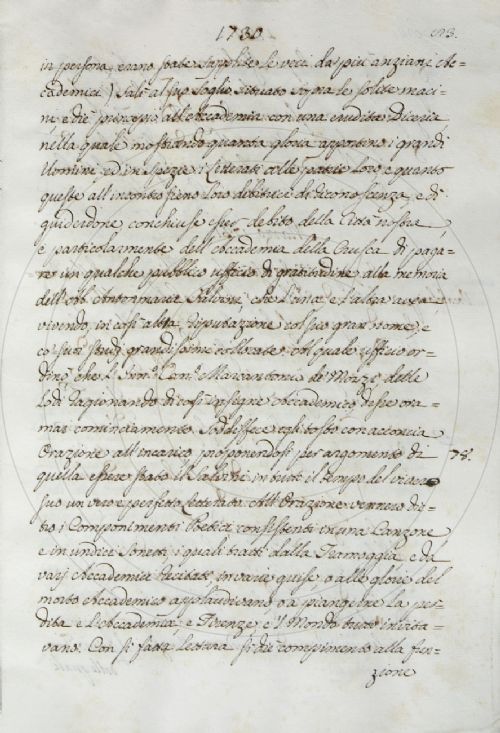 1730.
in persona, erano state supplite le veci da più anziani Ac=
cademici) salì al suo soglio situato sopra le solite maci=
ne e diè principio all'Accademia con una erudita Diceria
nella quale mostrando quanta gloria apportino i grandi
Uomini ed in spezie i Letterati colle patrie loro, e quanto
queste all'incontro sieno loro debitrici di riconoscenza, e di
guiderdone, conchiuse esser debito della Città nostra,
e particolarmente dell'Accademia della Crusca di paga=
re un qualche pubblico ufficio di gratitudine alla memoria
dell'Ab. Antonmaria Salvini, che l'una, e l'altra avea
vivendo, in così alta riputazione col suo gran nome, e
co' suoi studj grandissimi collocate. Col quale ufficio or=
dinò che il Can. Marcantonio de' Mozzi delle
lodi ragionando di così insigne Accademico desse ora=
mai cominciamento. Soddisfece egli tosto con acconcia
Orazione all'incarico proponendosi per argomento di
78.
quella essere stato il Salvini in tutto il tempo del viver
suo un vero e perfetto Letterato. All'Orazione vennero die=
tro i Componimenti Poetici consistenti in una Canzone
e in undici Sonetti, i quali tratti dalla Tramoggia, e da
varj Accademici recitati in varie guise, o alle glorie del
morto Accademico applaudivano o a piangere la per=
dita e l'Accademia, e Firenze, e 'l Mondo tutto invita=
vano. Con sì fatta Lettura si diè compimento alla fun=
zione